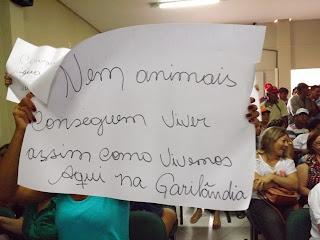 Nem animais
Conseguem viver
assim como vivemos
Aqui na Garilândia